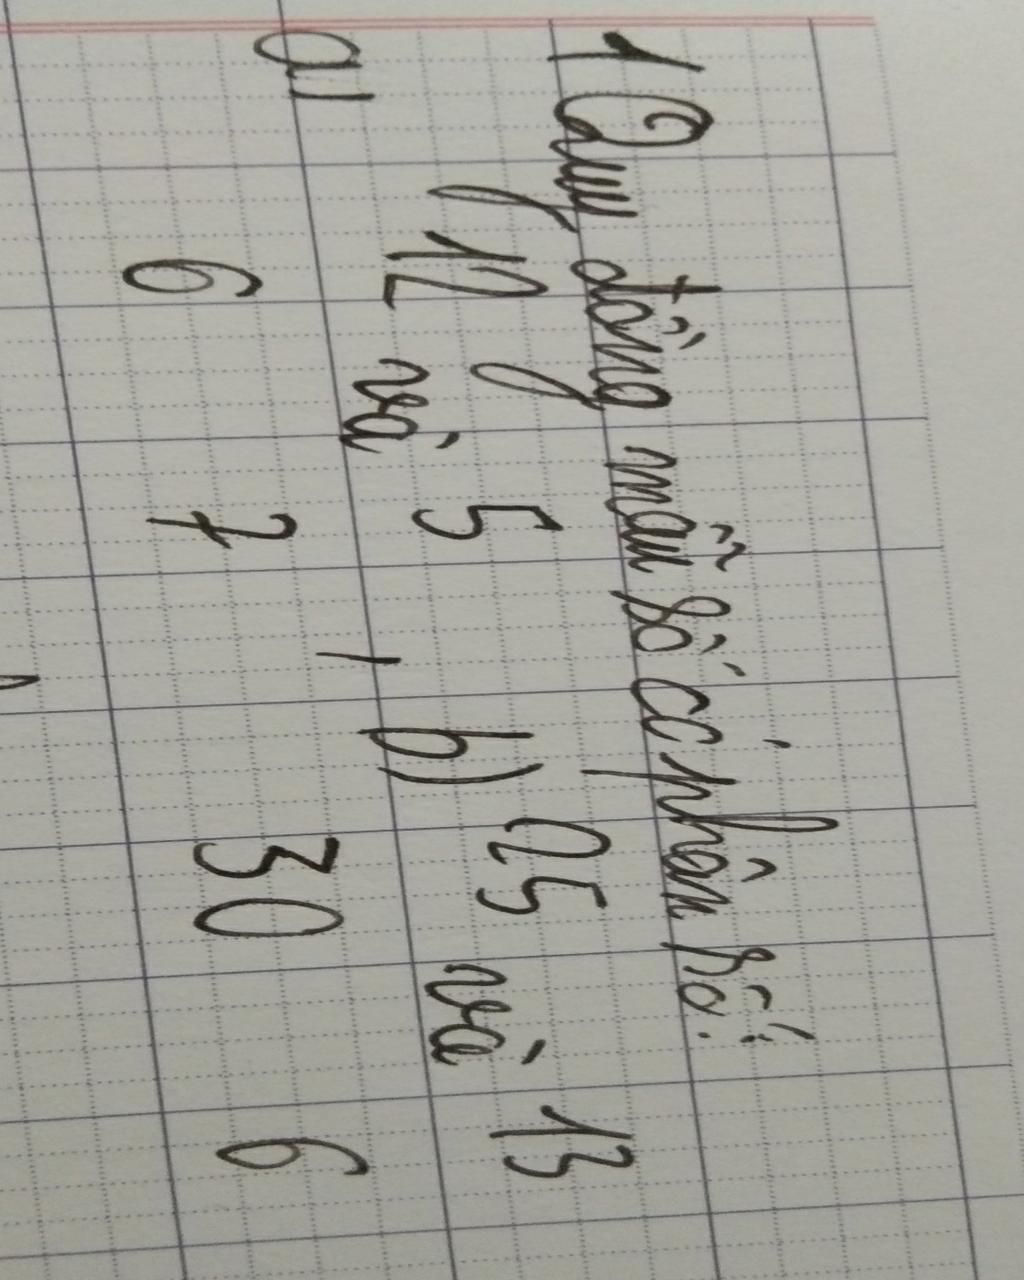 1 Quy đồng mẫu số các phân số:
a) 12 và 5 , b) 25 và 13
6 7 30 6